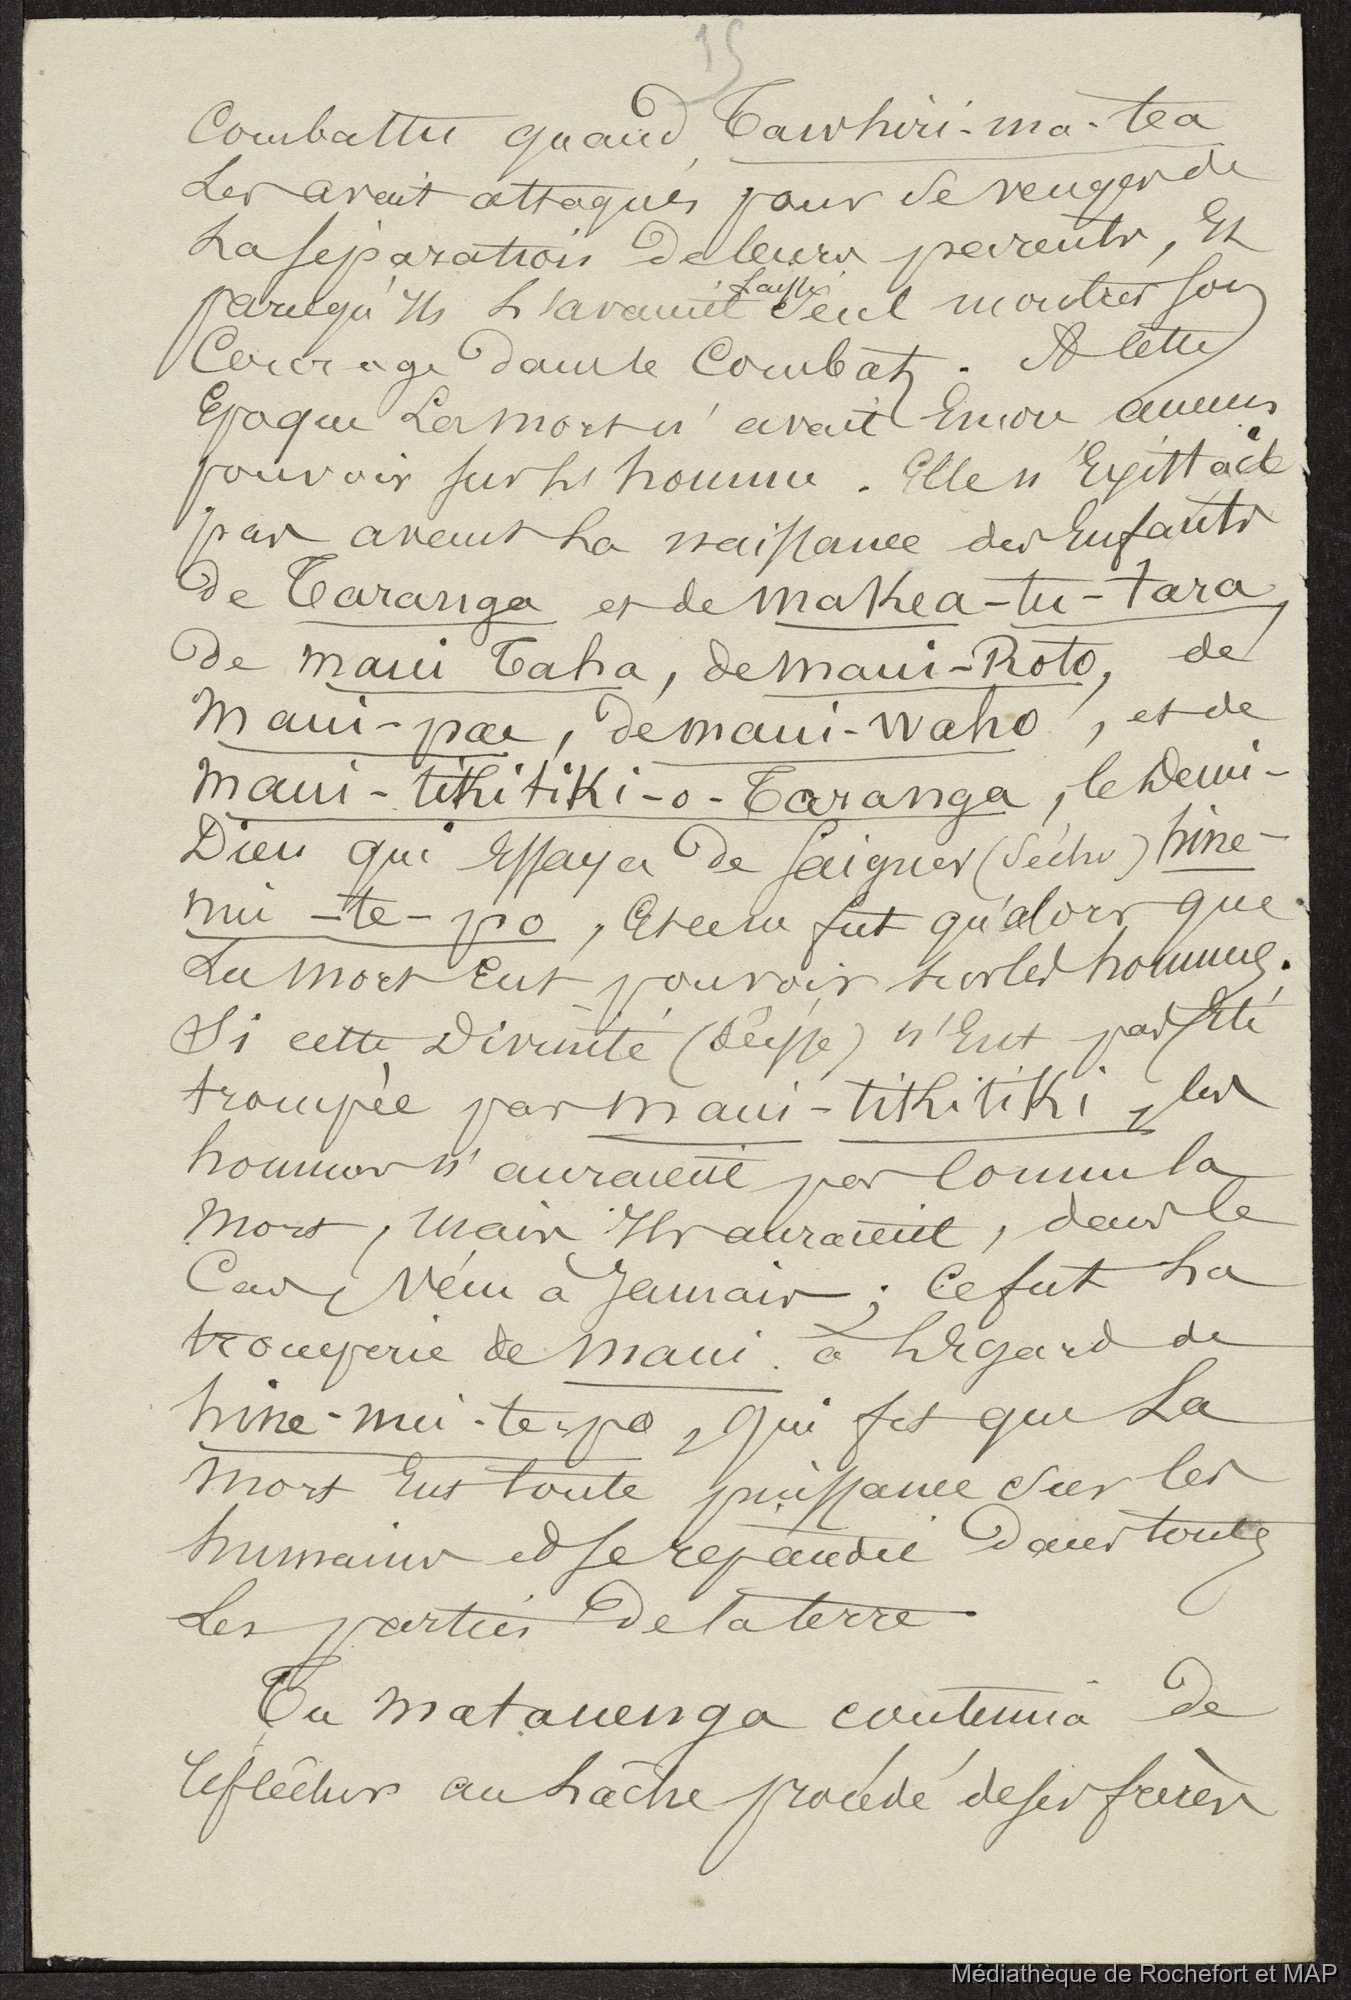 15
Combattu quand Tawhiri-ma-tea
les avait attaqués pour se venger de
la séparation de leurs parents, Et
parcequ'Ils l'avaient laissé seul montrer son
Courage dans le Combat. A cette
Epoque La mort n'avait Encore aucun
pouvoir sur les hommes. Elle n'Existait
pas avant La naissance des Enfants
de Taranga et de makea-tu-tara,
de maui Taha, de maui-Roto, de
maui-pae, de maui-waho, et de
maui-tikitiki-o-Taranga, le Demi-
Dieu qui Essaya de saigner (sécher) hine-
nui-te-po, Et ce ne fut qu'alors que
La mort Eut pouvoir sur les hommes.
Si cette Divinité (déesse) n'Eut pas Eté
trompée par maui-tikitiki, les
hommes n'auraient pas connu la
mort, mais Ils auraient, dans le
Cas, Vécu à Jamais; Ce fut La
tromperie de maui à L'Egard de
hine-nui-te-po, qui fit que La
mort Eut toute puissance sur les
humains et se répandit dans toutes
Les parties de la terre.
Tu matauenga continua de
réfléchir au lâche procédé de ses frères
Médiathèque de Rochefort et MAP